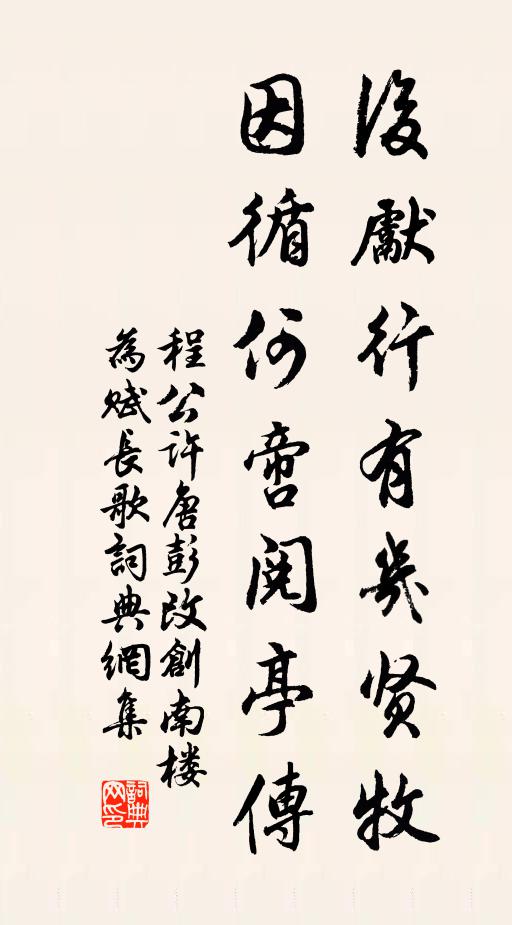 後獻行有幾贤牧
因循何啻閱亭傳
程公許唐彭改創南楼
為赋長歌詞典網集
詞典网印